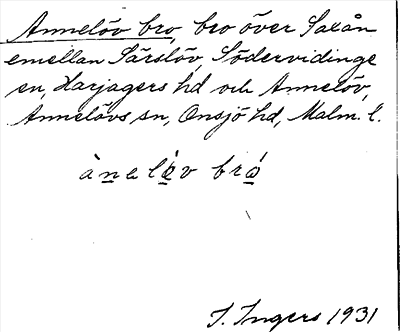 Annelöv bro, bro över Saxån
emellan Särslöv, Södervidinge
sn, Harjagers hd och Annelöv,
Annelövs sn, Onsjö hd, Malm. l.
ànelö́v bró
I. Ingers 1931